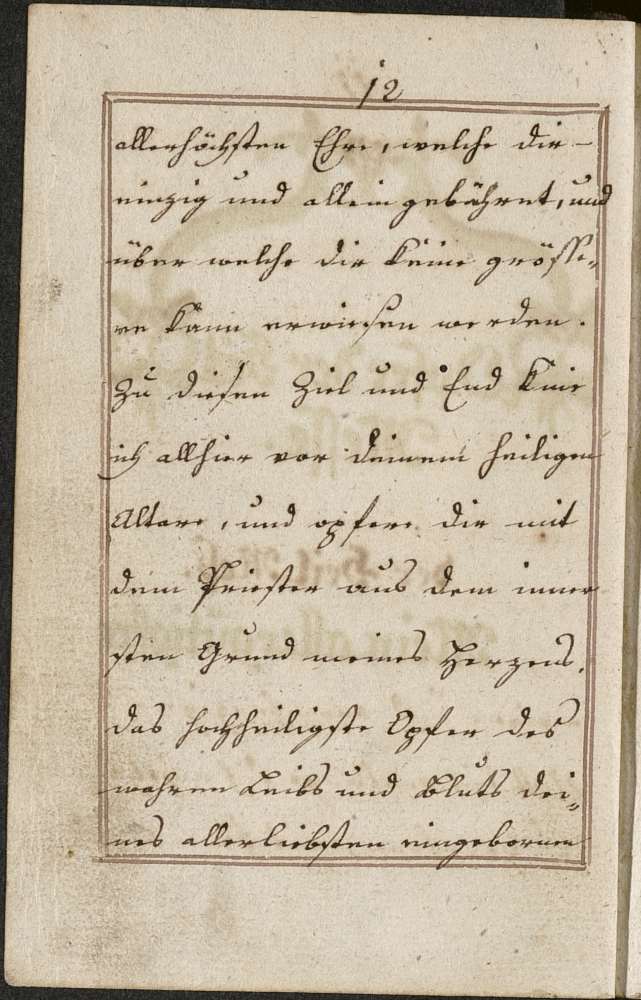 12
allerhöchsten Ehre, welche dir
einzig und allein gebühret, und
über welche dir keine grösse-
re kann erwiesen werden.
Zu diesen Ziel und End knie
ich allhier vor deinem heiligen
Altare, und opfere dir mit
dem Priester aus dem inner
sten Grund meines Herzens,
das hochheiligste Opfer des
wahren Leibs und Bluts dei-
nes allerliebsten eingebornen